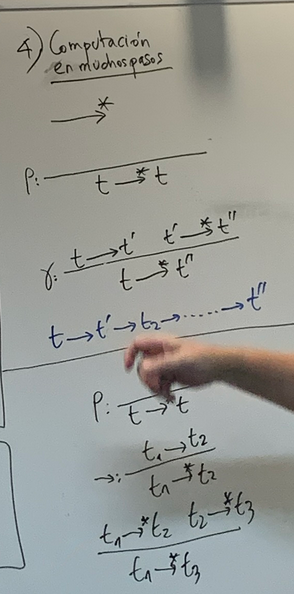 4) Computación
en muchos pasos
→*
ρ: t →* t
γ: t → t' t' →* t''
t →* t''
t → t' → t₂ → ...... → t''
ρ: t →* t
→: t₁ → t₂
t₁ →* t₂
t₁ →* t₂ t₂ →* t₃
t₁ →* t₃